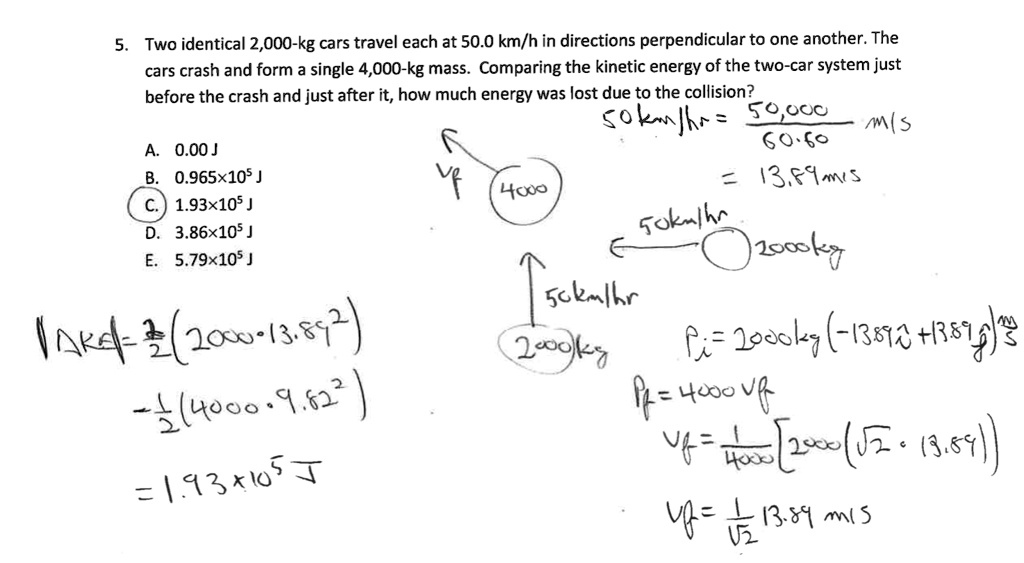 5. Two identical 2,000-kg cars travel each at 50.0 km/h in directions perpendicular to one another. The
cars crash and form a single 4,000-kg mass. Comparing the kinetic energy of the two-car system just
before the crash and just after it, how much energy was lost due to the collision?
50km/hr = 50,000/60·60 m/s
= 13.89 m/s
A. 0.00 J
B. 0.965×10⁵ J
C. 1.93×10⁵ J
D. 3.86×10⁵ J
E. 5.79×10⁵ J
vf
4000
50km/hr
2000kg
50km/hr
2000kg
|ΔKE| = 2/2 (2000·13.89²)
- 1/2 (4000·9.82²)
= 1.93×10⁵ J
Pi = 2000kg (-13.89 î + 13.89 ĵ) m/s
Pf = 4000 vf
vf = 1/4000 [2000(√2 · 13.89)]
vf = 1/√2 13.89 m/s